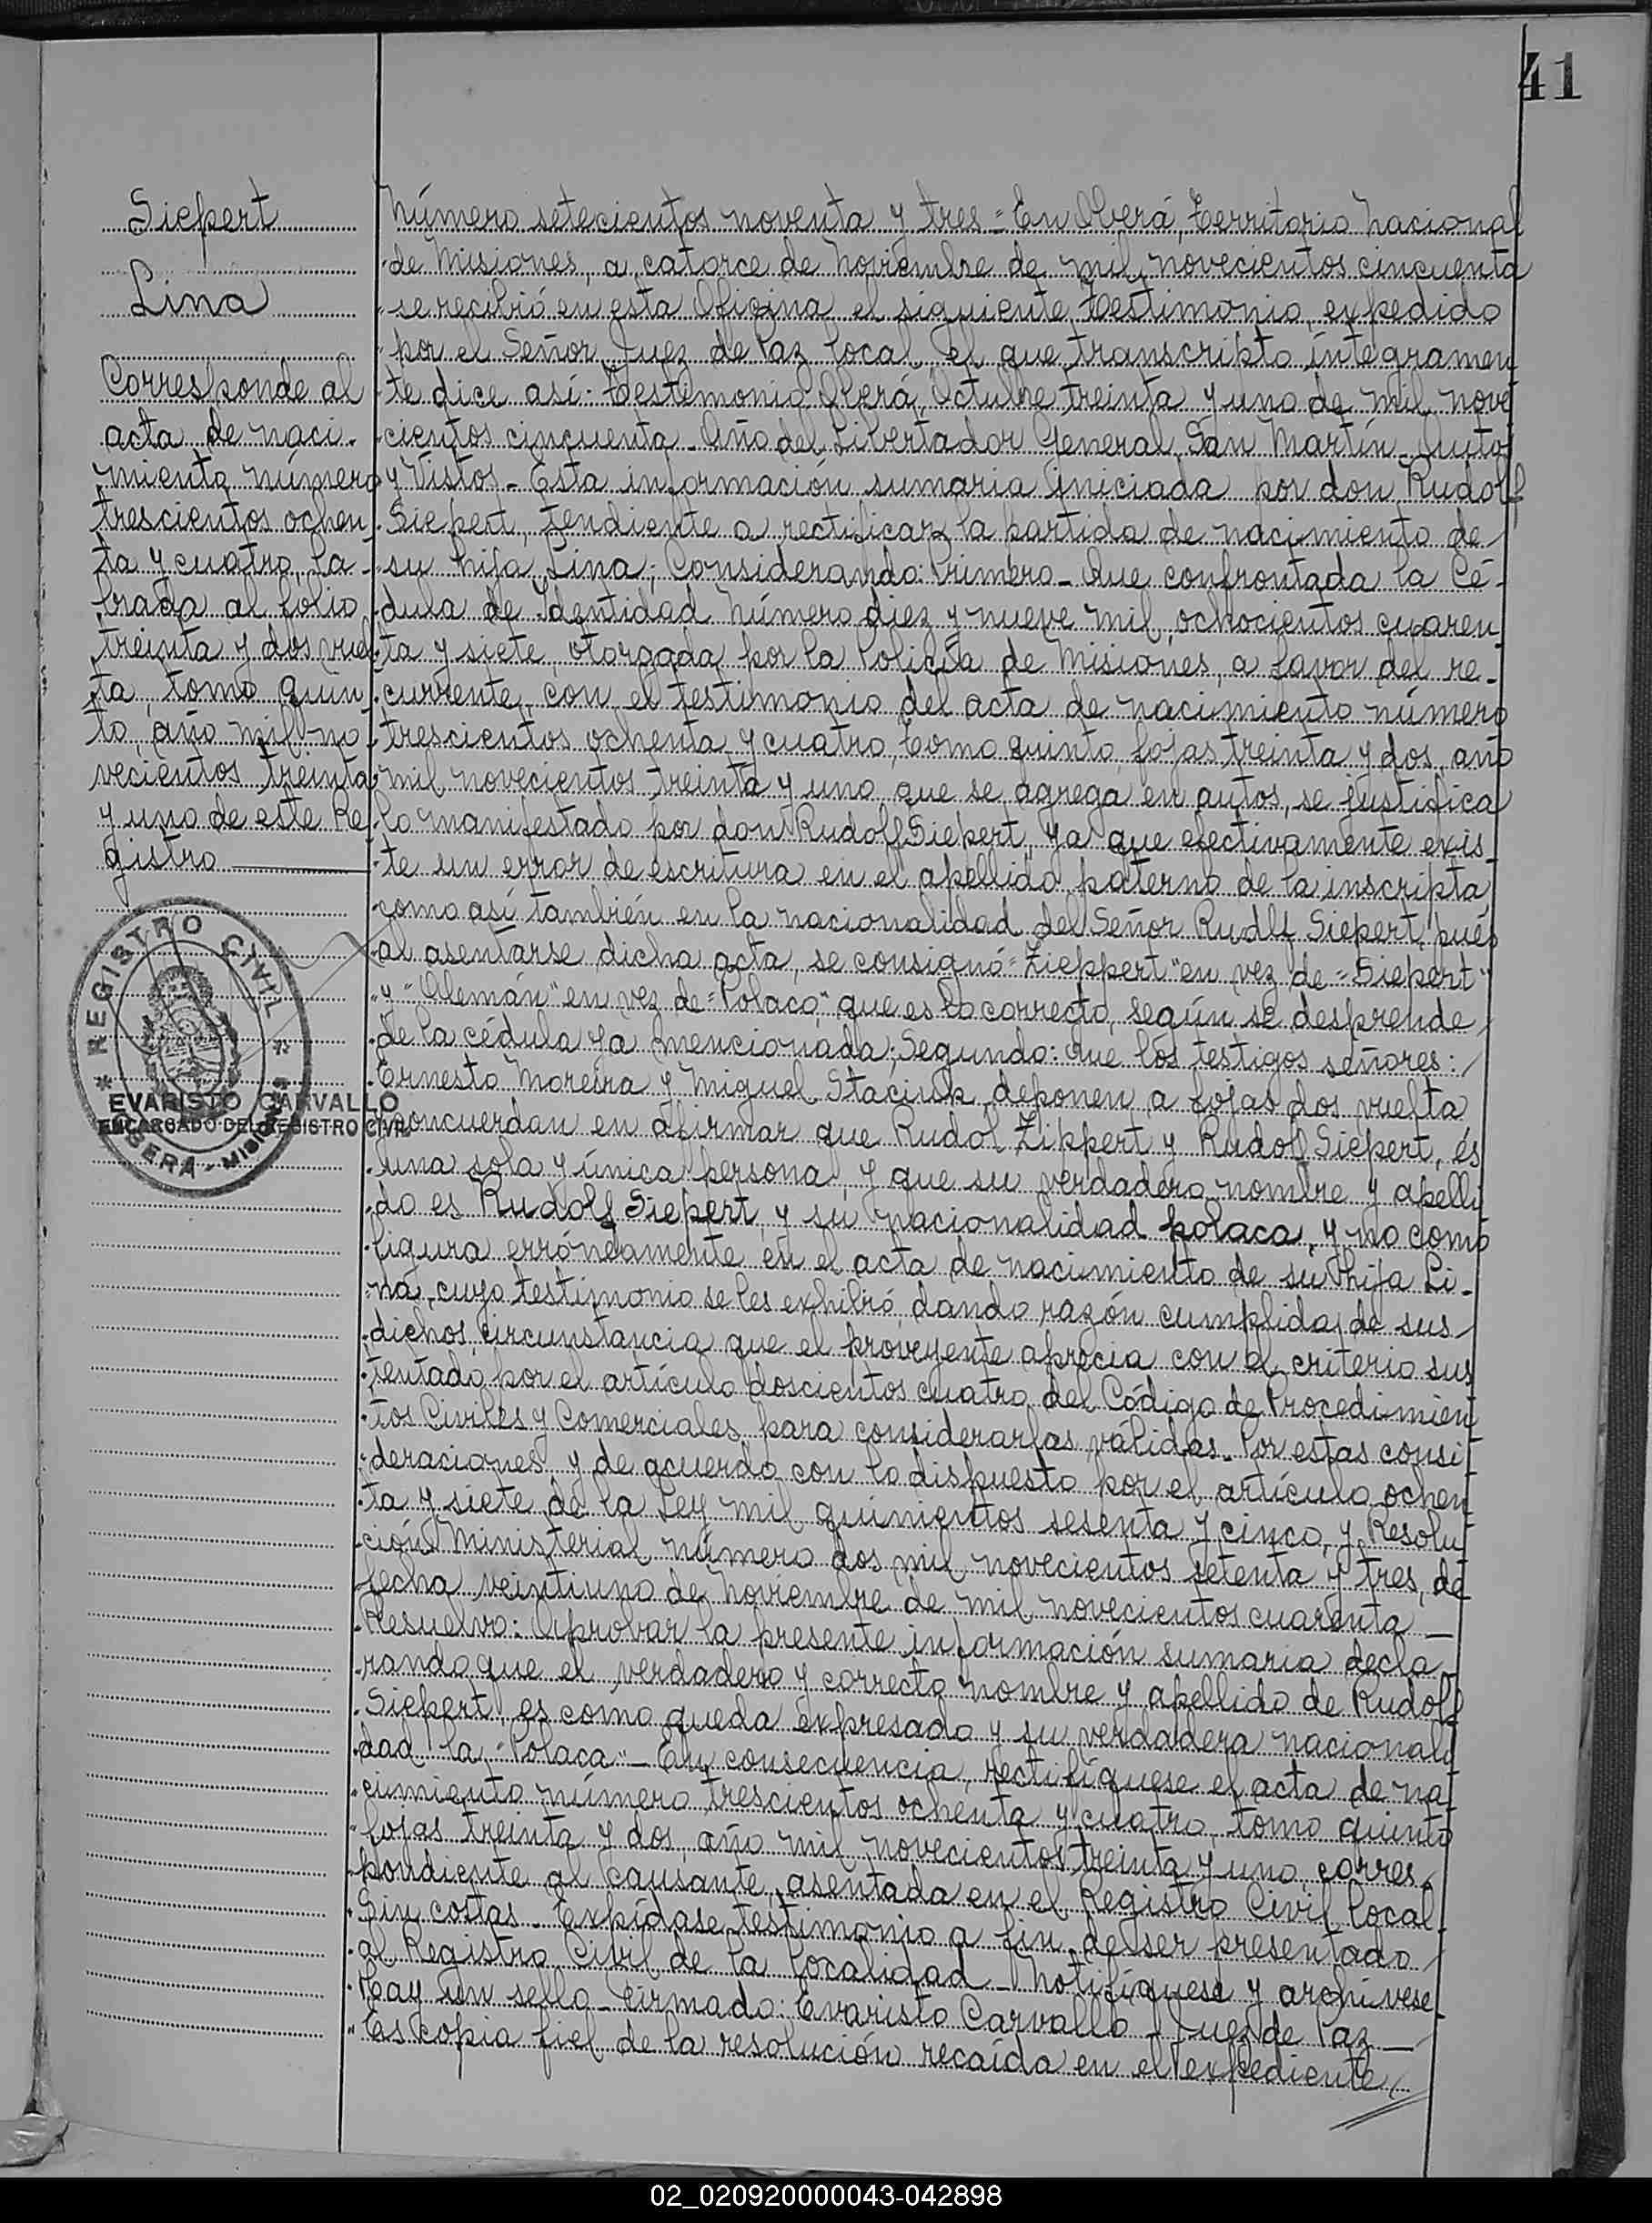 41
Siepert
Lina
Corresponde al
acta de naci-
miento número
trescientos ochen-
ta y cuatro, la-
brada al folio
treinta y dos vuel-
ta, tomo quin-
to, año mil no-
vecientos treinta
y uno de este Re-
gistro
REGISTRO CIVIL
OBERÁ - MISIONES
EVARISTO CARVALLO
ENCARGADO DEL REGISTRO CIVIL
Número setecientos noventa y tres = En Oberá, Territorio Nacional
de Misiones, a catorce de Noviembre de mil novecientos cincuenta
se recibió en esta Oficina el siguiente Testimonio, expedido
por el Señor Juez de Paz local, el que transcripto íntegramen
te dice así: Testimonio Oberá, Octubre treinta y uno de mil nove
cientos cincuenta - Año del Libertador General San Martín - Autos
y Vistos - Esta información sumaria iniciada por don Rudolf
Siepert, tendiente a rectificar la partida de nacimiento de
su hija Lina; Considerando: Primero - Que confrontada la Cé-
dula de Identidad Número diez y nueve mil ochocientos cuaren
ta y siete, otorgada por la Policía de Misiones, a favor del re-
currente, con el testimonio del acta de nacimiento número
trescientos ochenta y cuatro, tomo quinto, fojas treinta y dos, año
mil novecientos treinta y uno, que se agrega en autos, se justifica
lo manifestado por don Rudolf Siepert, ya que efectivamente exis
te un error de escritura en el apellido paterno de la inscripta
como así también en la nacionalidad del Señor Rudlf Siepert, pués
al asentarse dicha acta, se consignó = Zieppert" en vez de = Siepert"
y "Alemán" en vez de = Polaco", que es lo correcto, según se desprende
de la cédula ya mencionada; Segundo: Que los testigos señores:
Ernesto Moreira y Miguel deponen a fojas dos vuelta
concuerdan en afirmar que Rudol Zippert y Rudolf Siepert, és
una sola y única persona, y que su verdadero nombre y apelli
do es Rudolf Siepert, y su nacionalidad polaca, y no como
figura erróneamente en el acta de nacimiento de su hija Li-
na, cuyo testimonio se les exhibió, dando razón cumplida de sus
dichos, circunstancia que el proveyente aprecia con el criterio sus
tentado por el artículo doscientos cuatro del Código de Procedimien
tos Civiles y Comerciales, para considerarlas válidas. Por estas consi
deraciones y de acuerdo con lo dispuesto por el artículo ochen
ta y siete de la Ley mil quinientos sesenta y cinco, y Resolu
ción Ministerial número dos mil novecientos setenta y tres, de
fecha veintiuno de Noviembre de mil novecientos cuarenta —
Resuelvo: Aprobar la presente información sumaria decla
rando que el verdadero y correcto nombre y apellido de Rudolf
Siepert, es como queda expresado y su verdadera nacionali
dad la "Polaca" - En consecuencia, rectifíquese el acta de na
cimiento número trescientos ochenta y cuatro, tomo quinto
fojas treinta y dos, año mil novecientos treinta y uno, corres-
pondiente al causante, asentada en el Registro Civil local.
Sin costas. Expídase testimonio a fin de ser presentado
al Registro Civil de la localidad - Notifíquese y archívese
Hay un sello - Firmado: Evaristo Carvallo - Juez de Paz —
Es copia fiel de la resolución recaída en el expediente
02_020920000043-042898